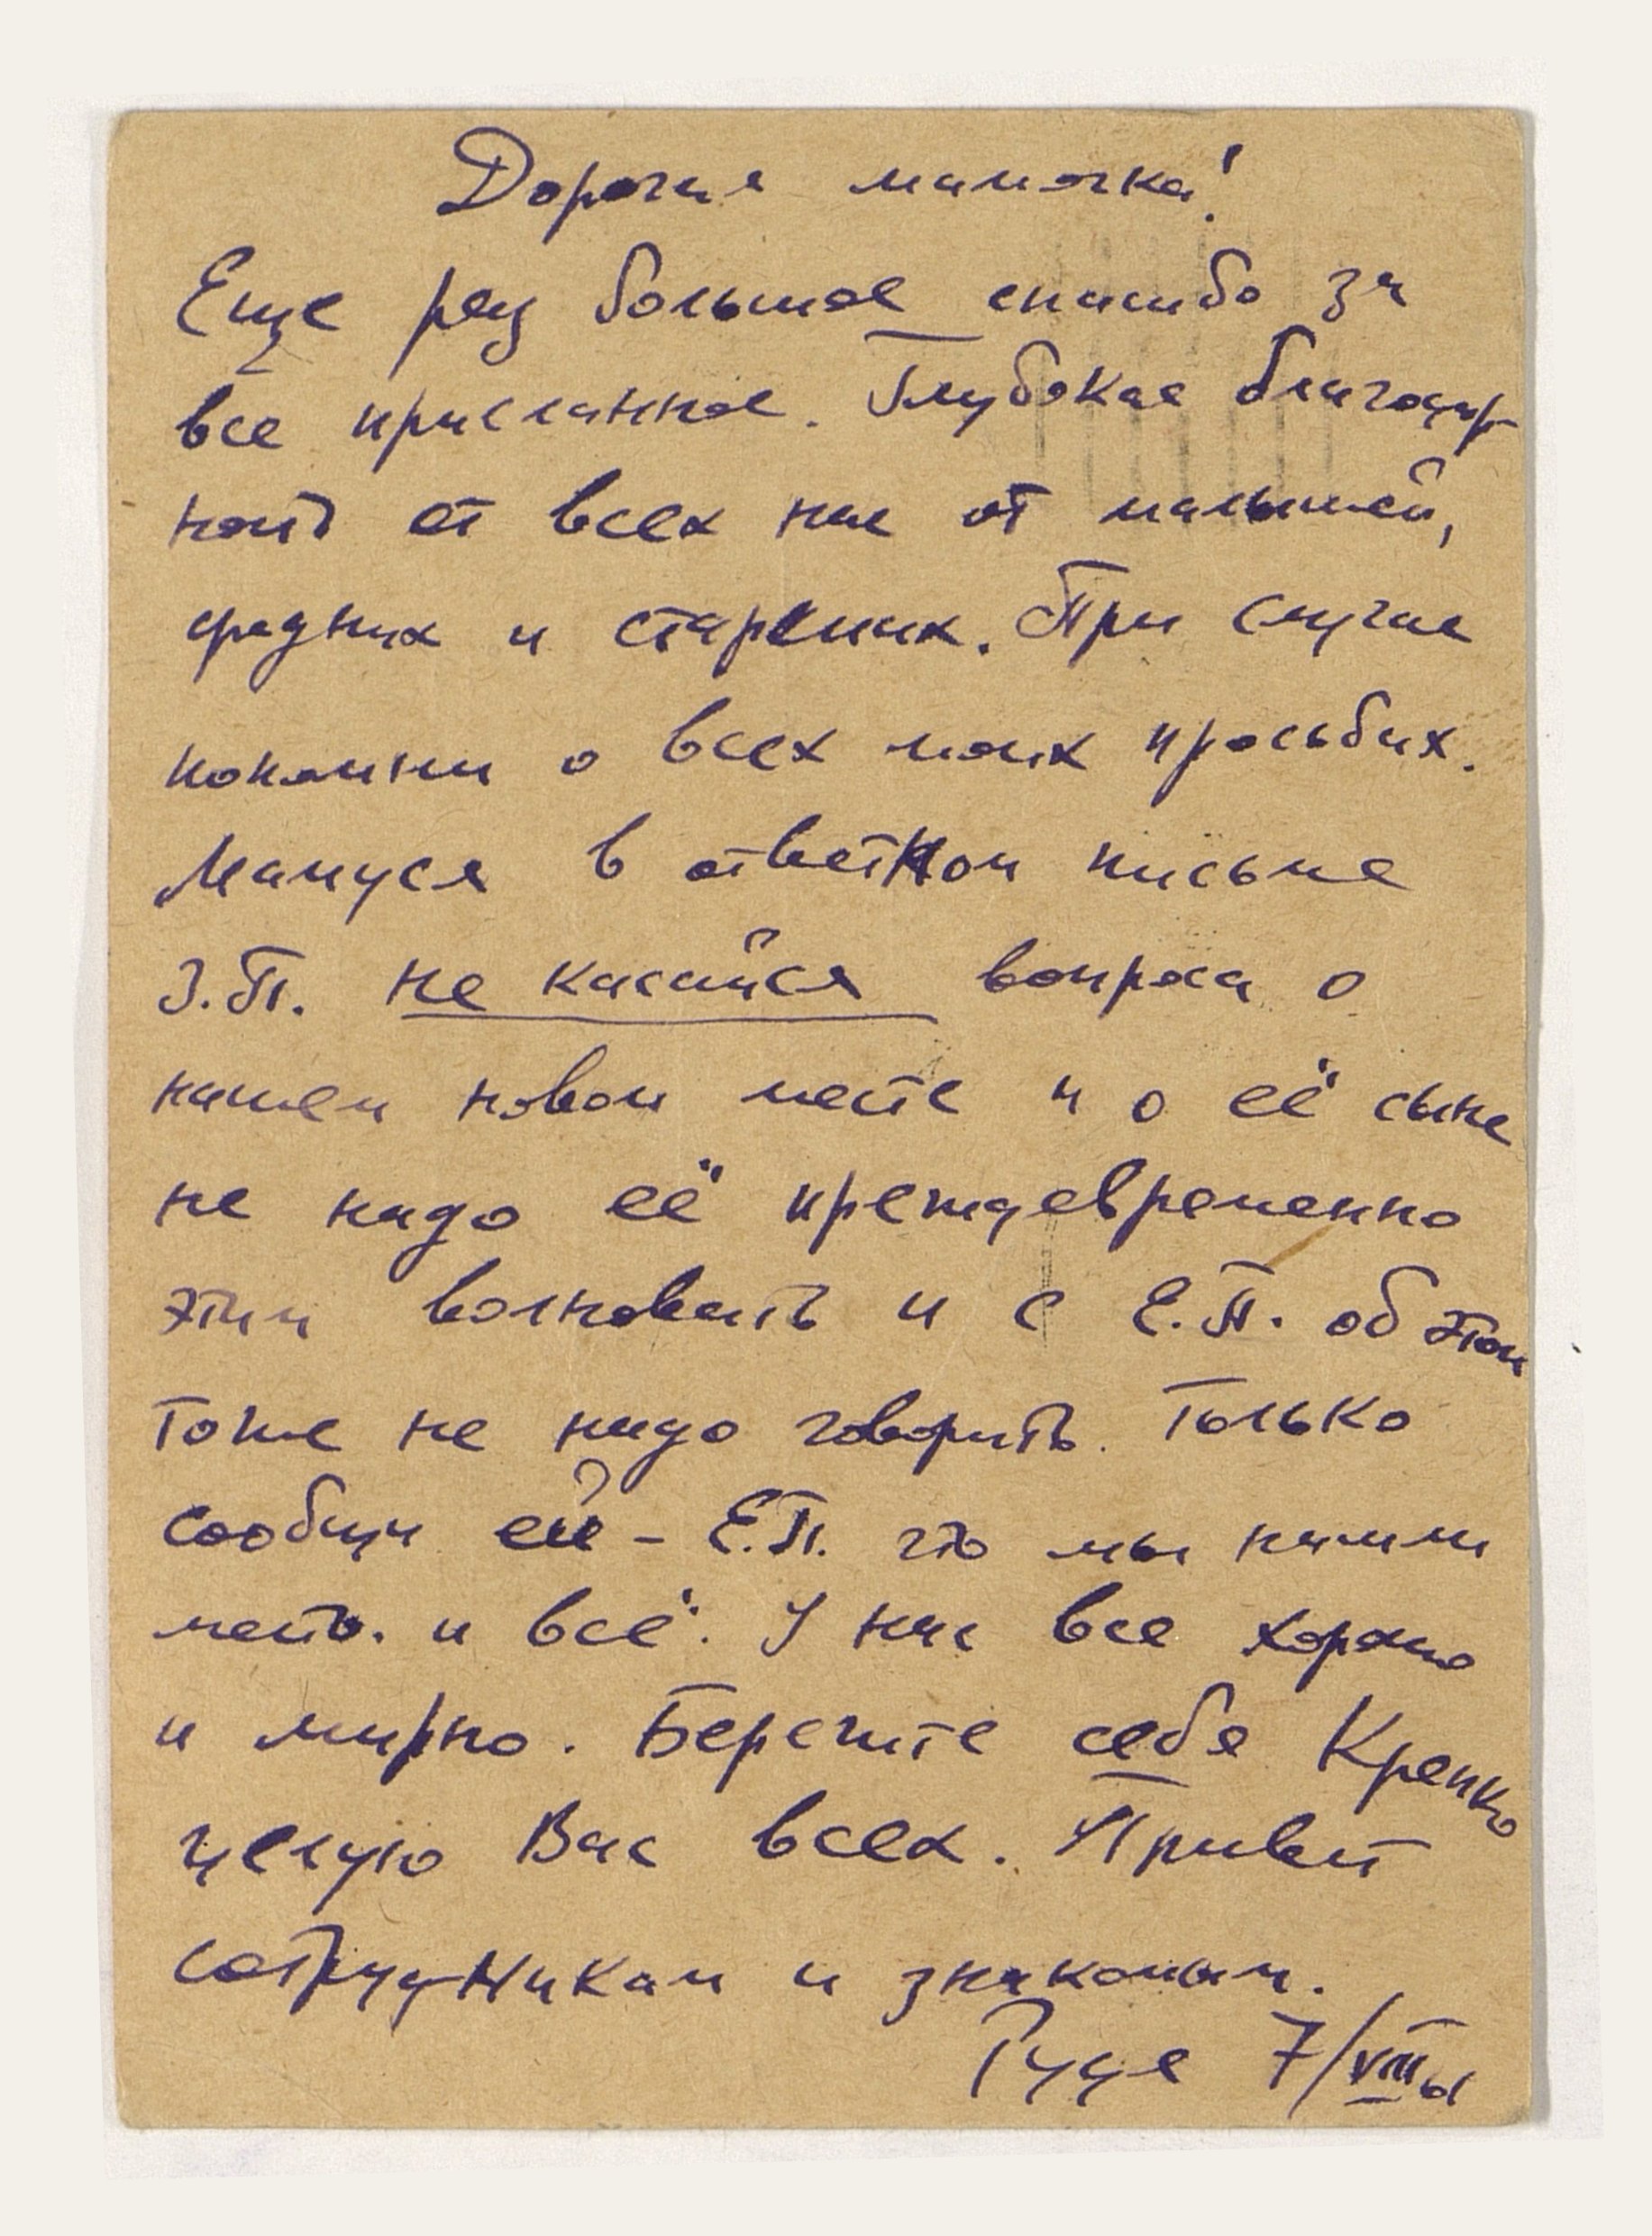 Дорогая мамочка!
Еще раз большое спасибо за
все присланное. Глубокая благодар-
ность от всех нас от малышей,
средних и старших. При случае
попомни о всех моих просьбах.
Мамуся в ответном письме
З.П. не касайся вопроса о
нашем новом месте и о её сыне
не надо её преждевременно
этим волновать и с Е.П. об этом
тоже не надо говорить. Только
сообщи ей - Е.П. что мы нашли
место. и всё. У нас все хорошо
и мирно. Берегите себя Крепко
целую Вас всех. Привет
сотрудникам и знакомым.
7/VIII